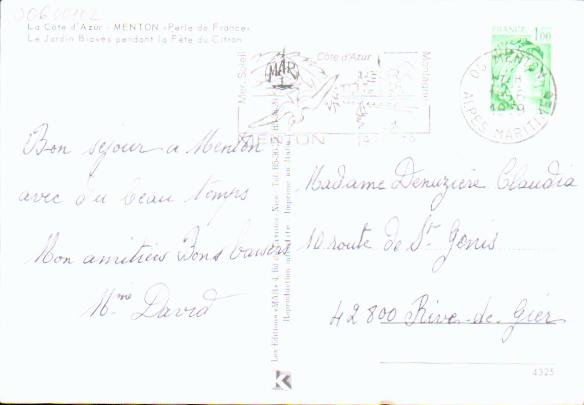 00600102
La Côte d'Azur - MENTON «Perle de France»
Le Jardin Biovès pendant la Fête du Citron
Bon séjour a Menton
avec du beau temps
Mon amitiées Bons baisers
Mme David
Mer, Soleil
Côte d'Azur
Montagne
MENTON
FRANCE
1,00
06 MENTON
ALPES MARITIMES
Madame Denuzière Claudia
10 route de St Genis
42800 Rive-de-Gier
Les Editions «MAR»
Reproduction interdite Imprimé en Italie
K
4325